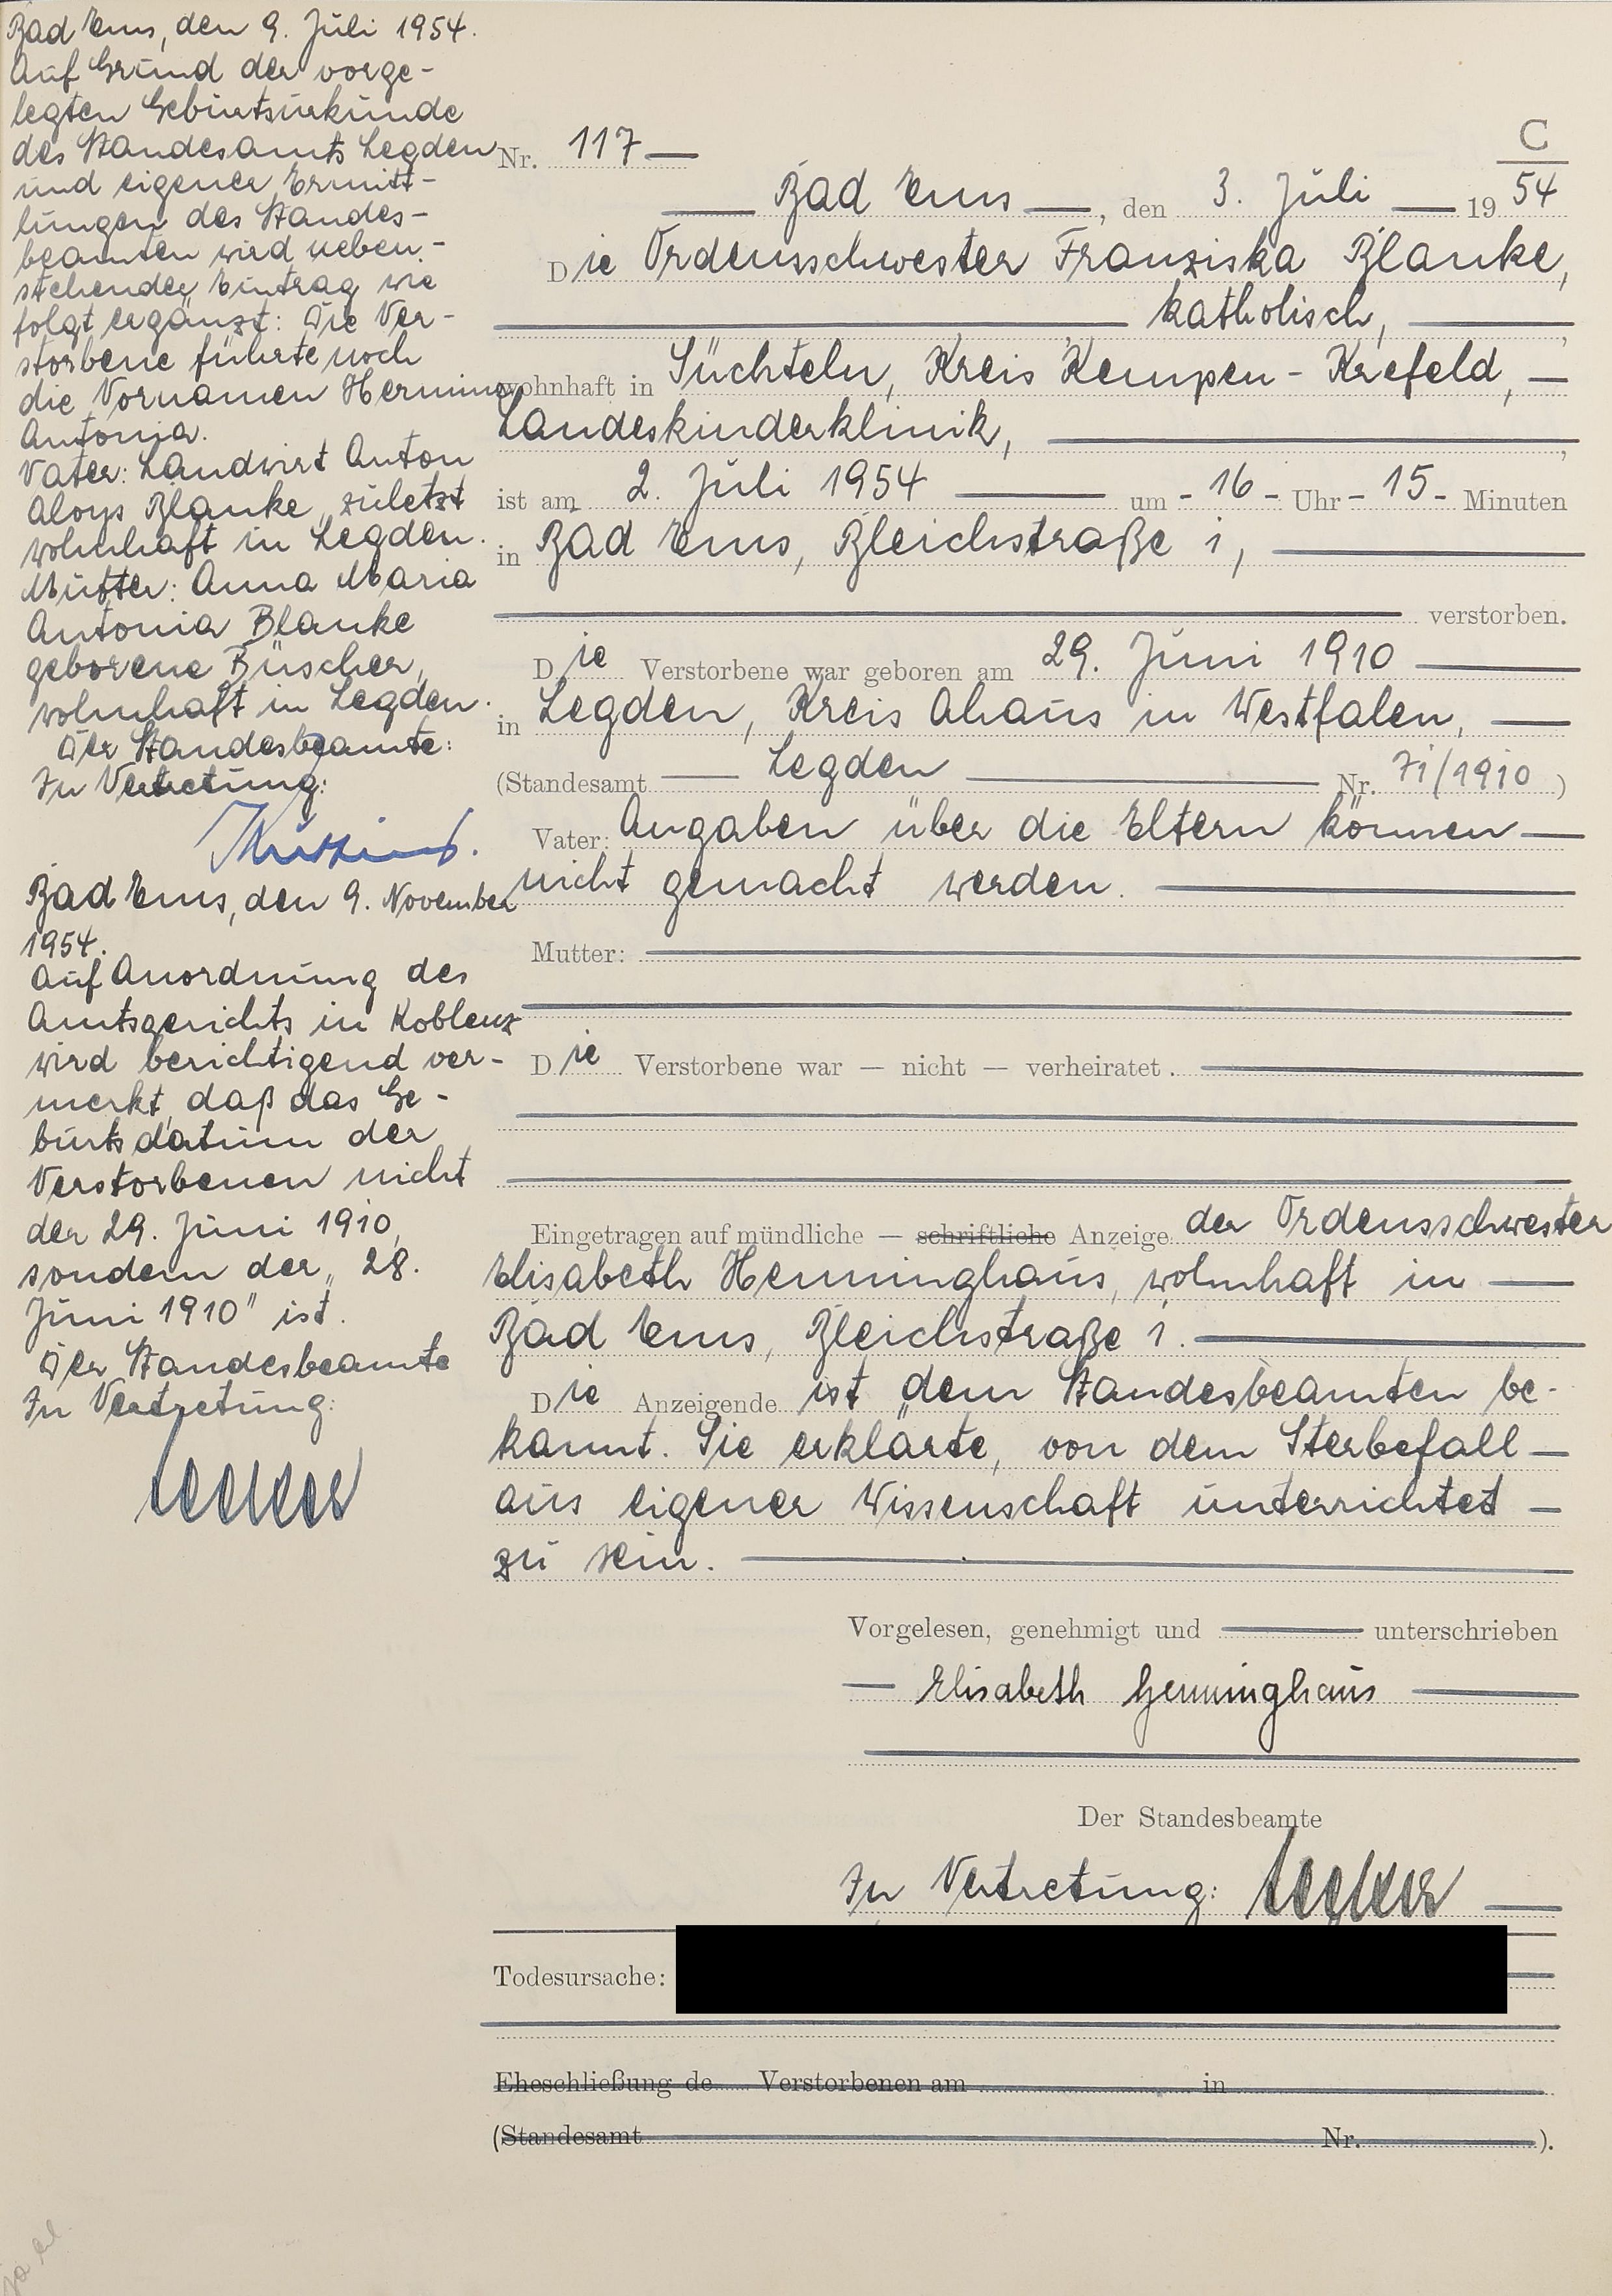 Bad Ems, den 9. Juli 1954.
Auf Grund der vorge-
legten Geburtsurkunde
des Standesamts Legden
und eigener Ermitt-
lungen des Standes-
beamten wird neben-
stehender Eintrag wie
folgt ergänzt: Die Ver-
storbene führte noch
die Vornamen Hermine
Antonia.
Vater: Landwirt Anton
Aloys Blanke, zuletzt
wohnhaft in Legden.
Mutter: Anna Maria
Antonia Blanke
geborene Büscher,
wohnhaft in Legden.
Der Standesbeamte:
In Vertretung:
Bad Ems, den 9. November
1954.
Auf Anordnung des
Amtsgerichts in Koblenz
wird berichtigend ver-
merkt, daß das Ge-
burtsdatum der
Verstorbenen nicht
der 29. Juni 1910,
sondern der „28.
Juni 1910" ist.
Der Standesbeamte
In Vertretung:
C
Nr. 117
Bad Ems, den 3. Juli 1954
Die Ordensschwester Franziska Blanke,
katholisch,
wohnhaft in Süchteln, Kreis Kempen - Krefeld,
Landeskinderklinik,
ist am 2. Juli 1954 um - 16 - Uhr - 15 - Minuten
in Bad Ems, Bleichstraße 1,
verstorben.
Die Verstorbene war geboren am 29. Juni 1910
in Legden, Kreis Ahaus in Westfalen,
(Standesamt Legden Nr. 71/1910)
Vater: Angaben über die Eltern können
nicht gemacht werden.
Mutter:
Die Verstorbene war — nicht — verheiratet.
Eingetragen auf mündliche — schriftliche Anzeige der Ordensschwester
Elisabeth Henninghaus, wohnhaft in
Bad Ems, Bleichstraße 1.
Die Anzeigende ist dem Standesbeamten be-
kannt. Sie erklärte, von dem Sterbefall
aus eigener Wissenschaft unterrichtet
zu sein.
Vorgelesen, genehmigt und unterschrieben
Elisabeth Henninghaus
Der Standesbeamte
In Vertretung:
Todesursache:
Eheschließung de Verstorbenen am in
(Standesamt Nr. ).